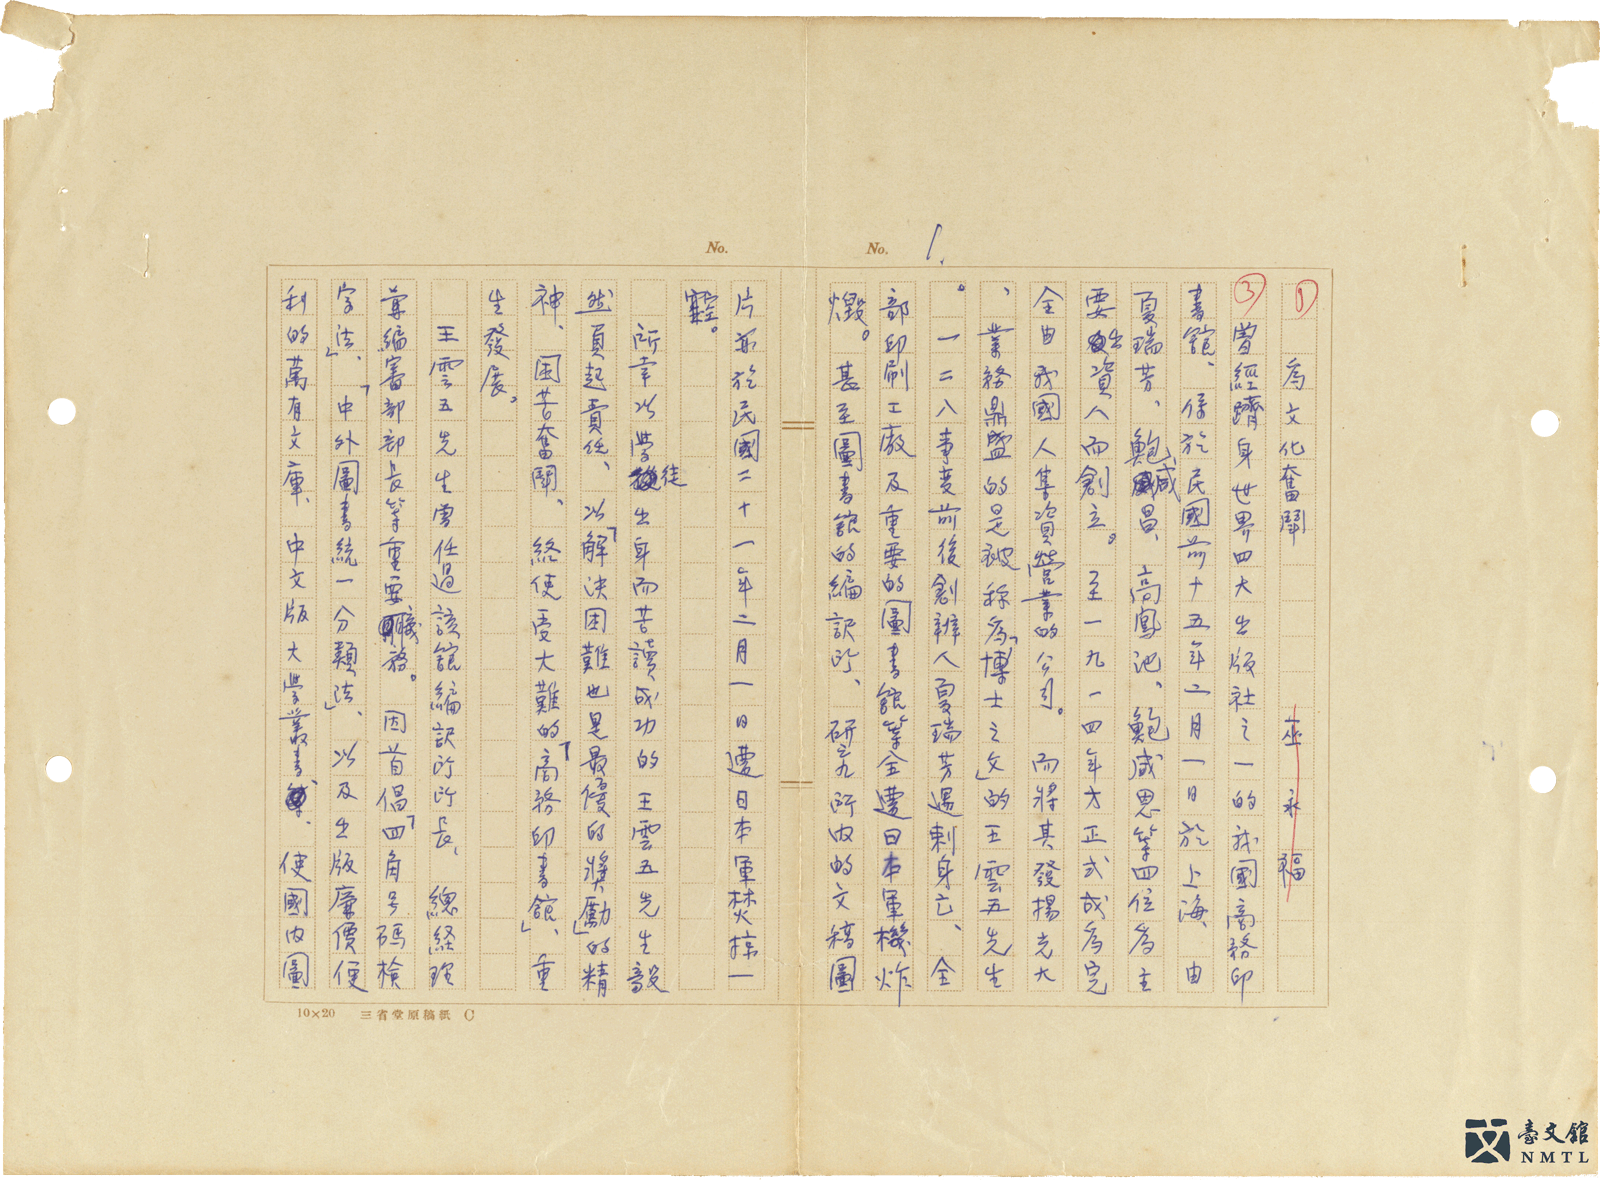 No. 1.
No.
① 為文化奮鬪 巫永福
③ 曾經躋身世界四大出版社之一的我國商務印
書館、係於民國前十五年二月一日於上海、由
夏瑞芳、鮑咸昌、高鳳池、鮑咸恩等四位為主
要出資人而創立。至一九一四年才正式成為完
全由我國人集資營業的公司。而將其發揚光大
、業務鼎盛的是被称為「博士之父」的王雲五先生
。一二八事变前後創辦人夏瑞芳遇刺身亡、全
部印刷工廠及重要的圖書館等全遭日本軍機炸
燬。甚至圖書館的編訳所、研究所内的文稿圖
片亦於民國二十一年二月一日遭日本軍焚掠一
空。
所幸以學徒出身而苦讀成功的王雲五先生毅
然負起責任、以「解決困難也是最優的獎勵」的精
神、困苦奮鬪、終使受大難的「商務印書館」、重
生發展。
王雲五先生曾任過該館編訳所所長、總経理
兼編審部部長等重要職務。因首倡「四角号碼檢
字法」、「中外圖書統一分類法」、以及出版廉價便
利的萬有文庫、中文版大學叢書等、使國内圖
10×20 三省堂原稿紙 C
臺文館
NMTL